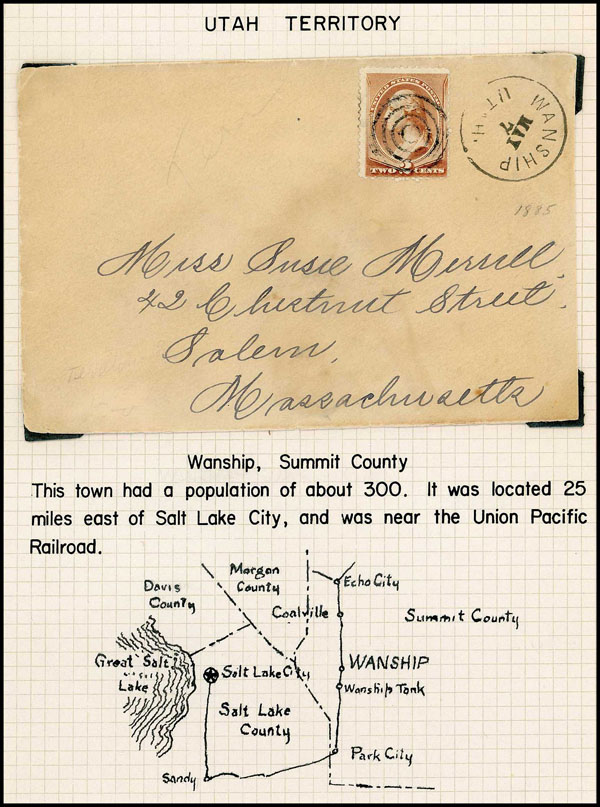 UTAH TERRITORY
UNITED STATES POSTAGE
TWO 2 CENTS
WANSHIP
UT'H.
MAY
7
1885
Miss Susie Merrill.
42 Chestnut Street.
Salem,
Massachusetts
Wanship, Summit County
This town had a population of about 300. It was located 25
miles east of Salt Lake City, and was near the Union Pacific
Railroad.
Morgan
County
Davis
County
Echo City
Coalville
Summit County
Great Salt
Lake
Salt Lake City
WANSHIP
Wanship Tank
Salt Lake
County
Park City
Sandy